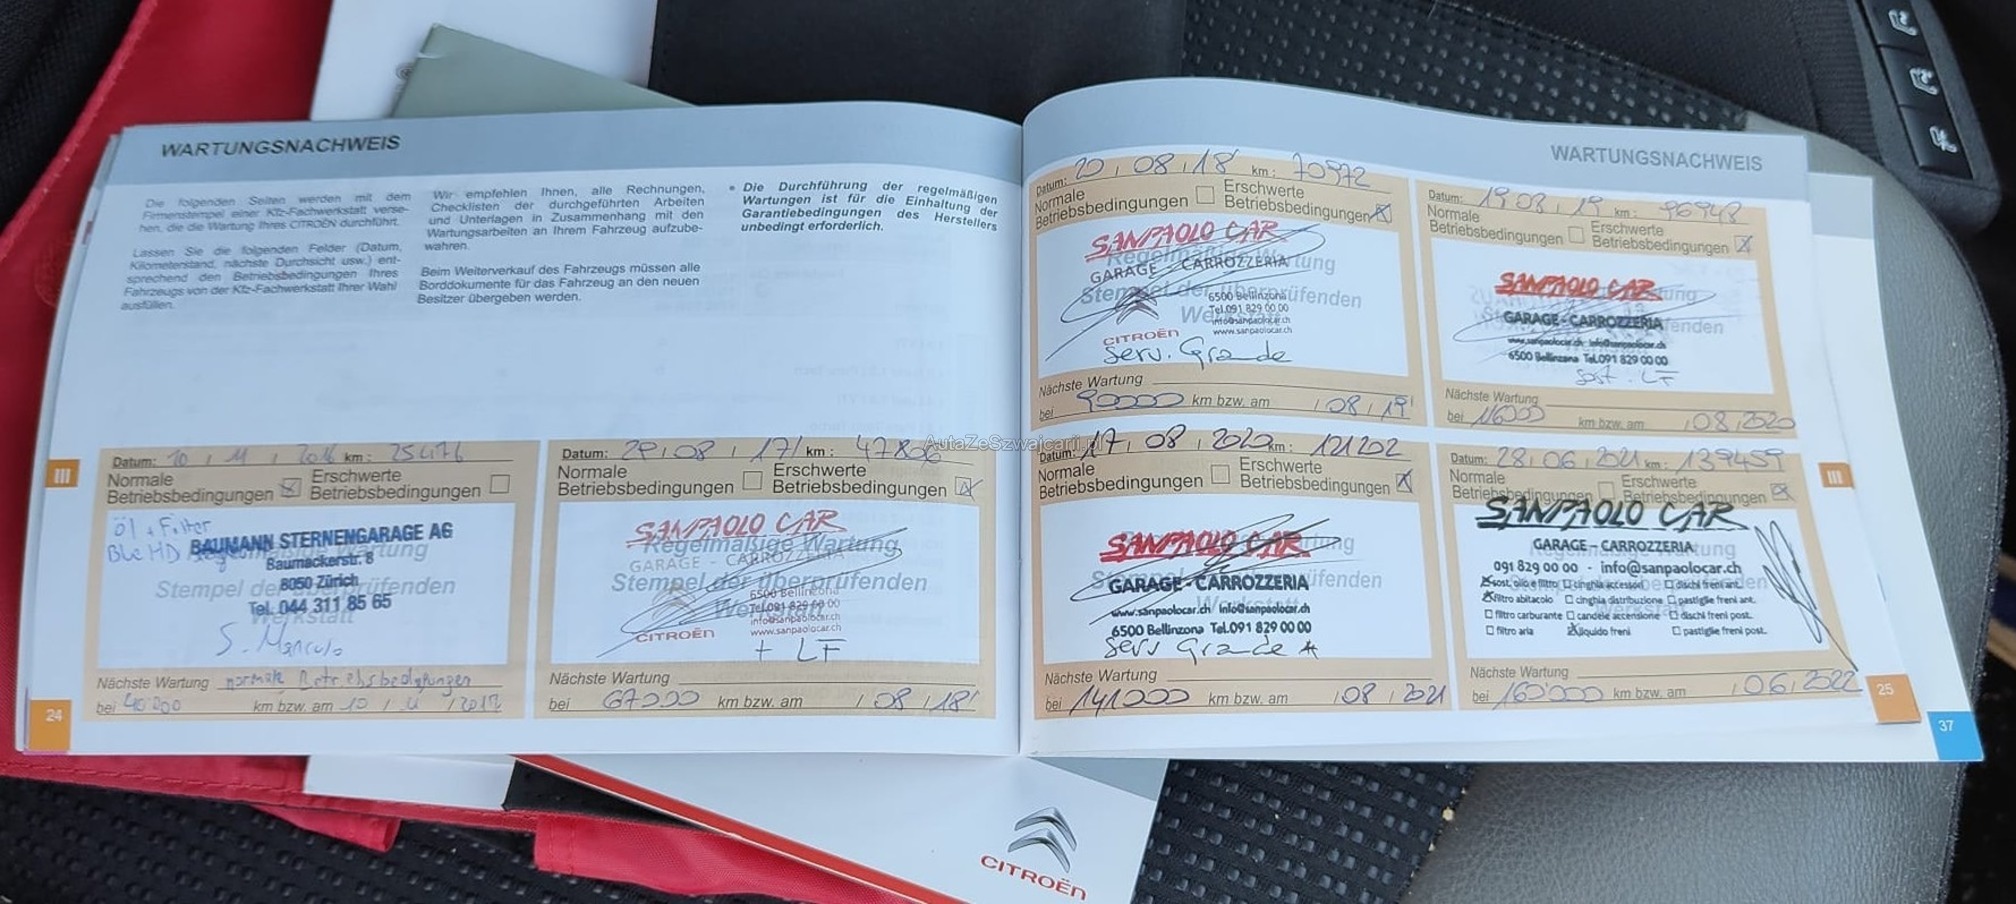 WARTUNGSNACHWEIS
Die folgenden Seiten werden mit dem
Firmenstempel einer Kfz-Fachwerkstatt verse-
hen, die die Wartung Ihres CITROËN durchführt.
Lassen Sie die folgenden Felder (Datum,
Kilometerstand, nächste Durchsicht usw.) ent-
sprechend den Betriebsbedingungen Ihres
Fahrzeugs von der Kfz-Fachwerkstatt Ihrer Wahl
ausfüllen.
Wir empfehlen Ihnen, alle Rechnungen,
Checklisten der durchgeführten Arbeiten
und Unterlagen in Zusammenhang mit den
Wartungsarbeiten an Ihrem Fahrzeug aufzube-
wahren.
Beim Weiterverkauf des Fahrzeugs müssen alle
Borddokumente für das Fahrzeug an den neuen
Besitzer übergeben werden.
• Die Durchführung der regelmäßigen
Wartungen ist für die Einhaltung der
Garantiebedingungen des Herstellers
unbedingt erforderlich.
III
Datum: 10 / 11 / 2016 km: 25476
Normale Betriebsbedingungen
Erschwerte Betriebsbedingungen
Öl + Filter
BAUMANN STERNENGARAGE AG
Baumackerstr. 8
8050 Zürich
Tel. 044 311 85 65
Stempel der überprüfenden
Werkstatt
Nächste Wartung normale Betriebsbedingungen
bei 40'000 km bzw. am 10 / 11 / 2017
24
Datum: 29 / 08 / 17 / km: 47806
Normale Betriebsbedingungen
Erschwerte Betriebsbedingungen
SANPAOLO CAR
Regelmäßige Wartung
GARAGE - CARROZZERIA
Stempel der überprüfenden
Werkstatt
6500 Bellinzona
Tel.091 829 00 00
info@sanpaolocar.ch
www.sanpaolocar.ch
CITROËN
+ LF
Nächste Wartung
bei 67000 km bzw. am / 08 / 18
WARTUNGSNACHWEIS
Datum: 20 / 08 / 18 km: 70972
Normale Betriebsbedingungen
Erschwerte Betriebsbedingungen
SANPAOLO CAR
Regelmäßige Wartung
GARAGE - CARROZZERIA
Stempel der überprüfenden
Werkstatt
6500 Bellinzona
Tel.091 829 00 00
info@sanpaolocar.ch
www.sanpaolocar.ch
CITROËN
Serv. Grande
Nächste Wartung
bei 90000 km bzw. am / 08 / 19
Datum: 19 08 / 19 km: 96948
Normale Betriebsbedingungen
Erschwerte Betriebsbedingungen
SANPAOLO CAR
GARAGE - CARROZZERIA
www.sanpaolocar.ch info@sanpaolocar.ch
6500 Bellinzona Tel.091 829 00 00
Sost. LF
Nächste Wartung
bei 116000 km bzw. am / 08 / 2020
AutaZeSzwajcarii.pl
Datum: 17 / 08 / 2020 km: 121202
Normale Betriebsbedingungen
Erschwerte Betriebsbedingungen
SANPAOLO CAR
GARAGE - CARROZZERIA
www.sanpaolocar.ch info@sanpaolocar.ch
6500 Bellinzona Tel.091 829 00 00
Serv Grande
Nächste Wartung
bei 141000 km bzw. am / 08 / 2021
Datum: 28 / 06 / 2021 km: 139459
Normale Betriebsbedingungen
Erschwerte Betriebsbedingungen
SANPAOLO CAR
GARAGE - CARROZZERIA
091 829 00 00 - info@sanpaolocar.ch
sost. olio e filtro cinghia accessori dischi freni ant.
filtro abitacolo cinghia distribuzione pastiglie freni ant.
filtro carburante candele accensione dischi freni post.
filtro aria liquido freni pastiglie freni post.
Nächste Wartung
bei 160'000 km bzw. am / 06 / 2022
III
25
37
CITROËN